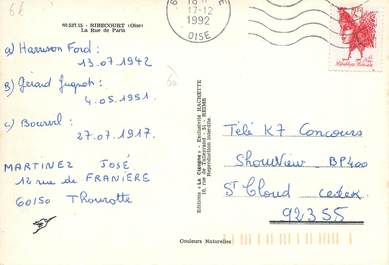 60.537.15 - RIBECOURT (Oise)
La Rue de Paris
17-12
1992
OISE
République Française
a) Harrison Ford :
13.07.1942
B) Gérard Jugnot :
4.05.1951.
c) Bourvil :
27.07.1917.
MARTINEZ JOSÉ
12 rue de FRANIÈRE
60150 Thourotte
Editions « La Cigogne » - Exclusivité HACHETTE
10, rue de Talleyrand - 51 - REIMS
Reproduction interdite
Télé K7 Concours
ShowView BP400
St Cloud Cedex
92355
Couleurs Naturelles